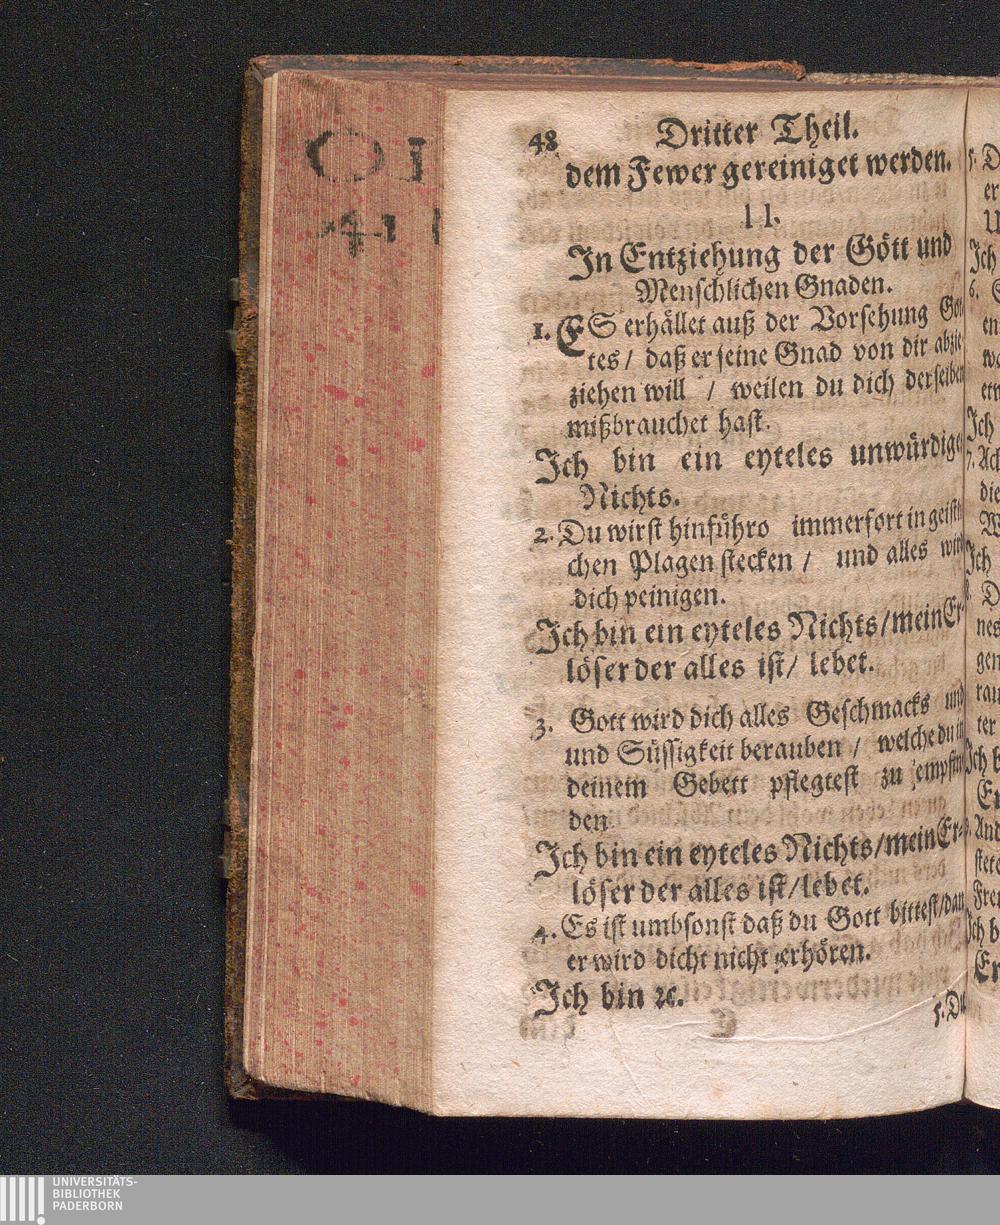 48 Dritter Theil.
dem Fewer gereiniget werden.
II.
In Entziehung der Gött und
Menschlichen Gnaden.
1. ES erhället auß der Vorsehung
tes / daß er seine Gnad von dir abzie
ziehen will / weilen du dich derselben
mißbrauchet hast.
Ich bin ein eyteles unwürdiges
Nichts.
2. Du wirst hinführo immerfort in geistli
chen Plagen stecken / und alles wird
dich peinigen.
Ich bin ein eyteles Nichts / mein Er-
löser der alles ist / lebet.
3. Gott wird dich alles Geschmacks und
und Süssigkeit berauben / welche du in
deinem Gebett pflegtest zu empfin
den
Ich bin ein eyteles Nichts / mein Er-
löser der alles ist / lebet.
4. Es ist umbsonst daß du Gott bittest / dan
er wird dicht nicht erhören.
Ich bin ꝛc.
5. Du
UNIVERSITÄTS-
BIBLIOTHEK
PADERBORN